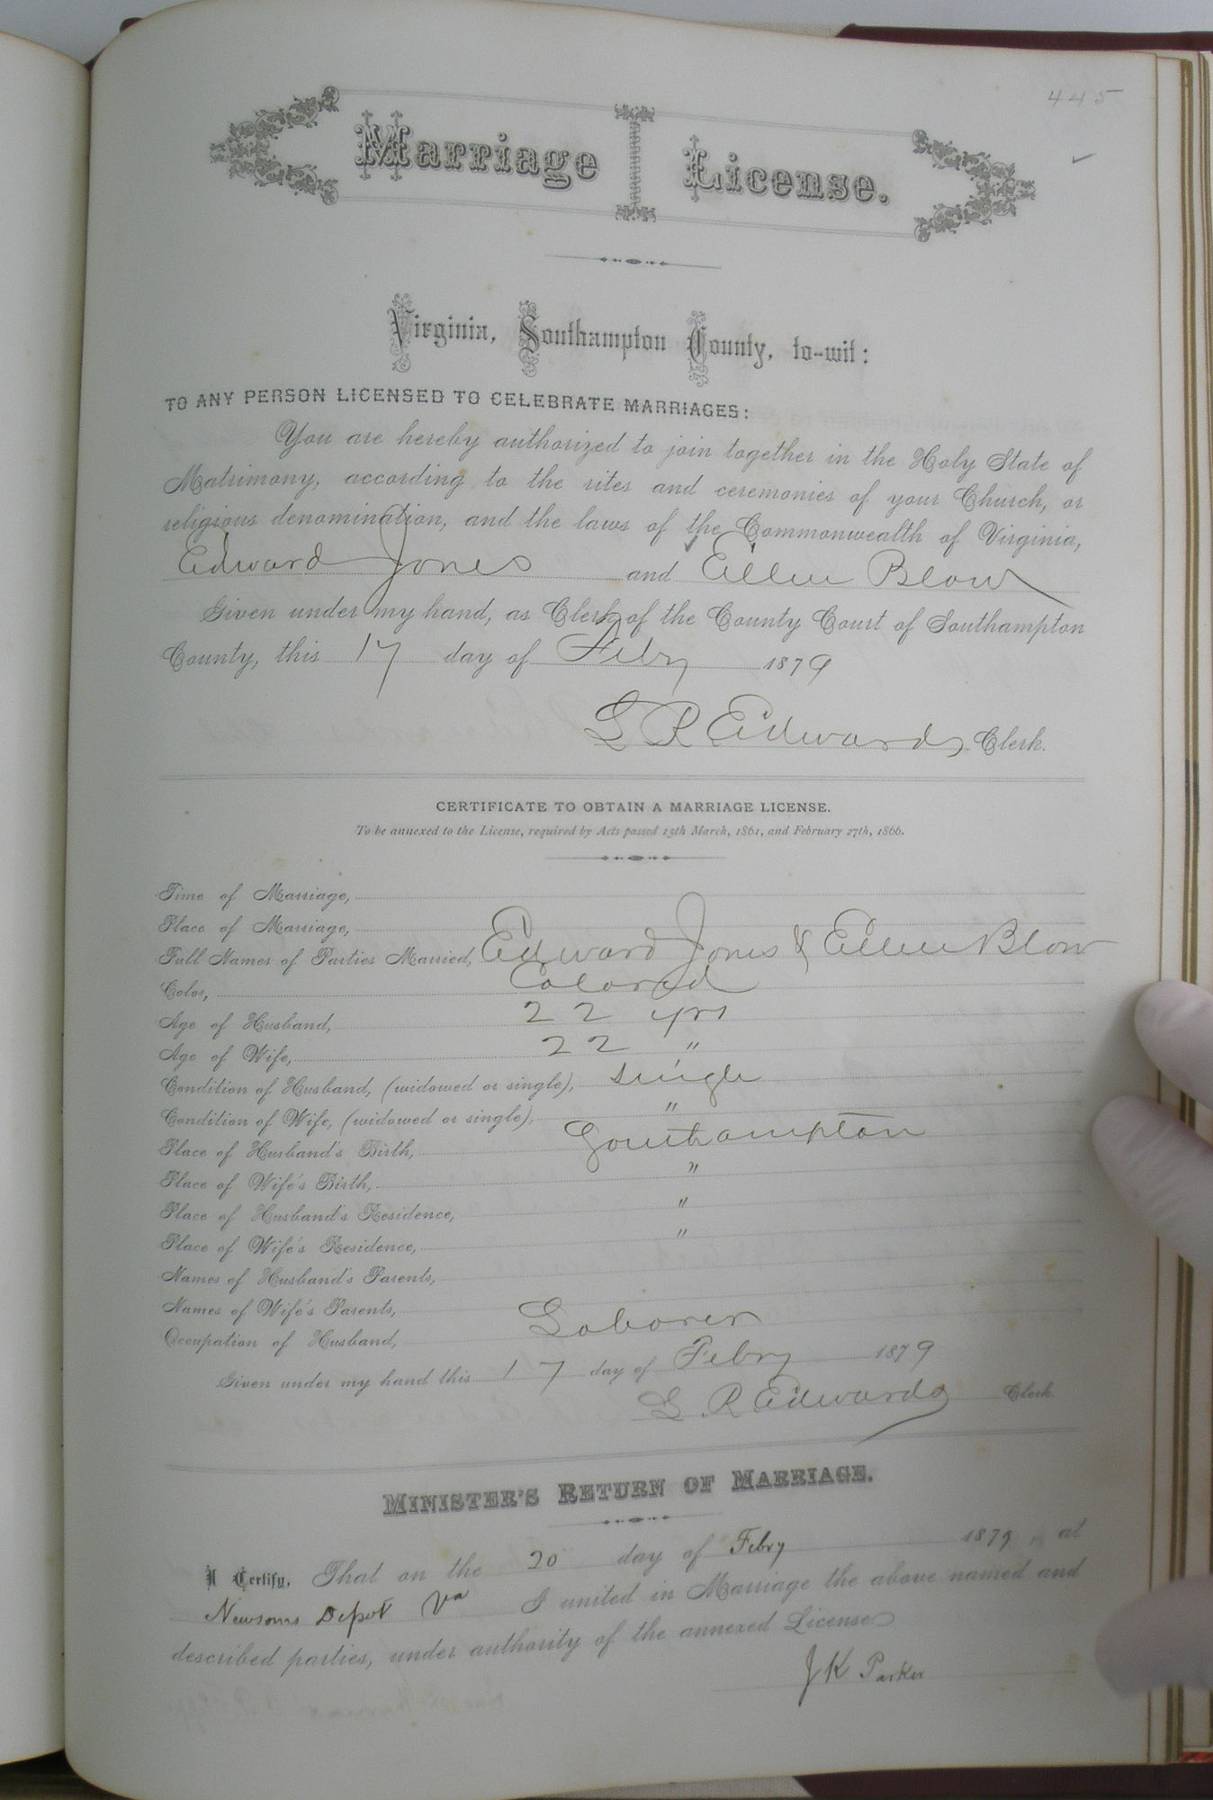 445
Marriage License.
Virginia, Southampton County, to-wit:
TO ANY PERSON LICENSED TO CELEBRATE MARRIAGES:
You are hereby authorized to join together in the Holy State of
Matrimony, according to the rites and ceremonies of your Church, or
religious denomination, and the laws of the Commonwealth of Virginia,
Edward Jones and Ellen Blow
Given under my hand, as Clerk of the County Court of Southampton
County, this 17 day of Feby 1879
L R Edwards, Clerk.
CERTIFICATE TO OBTAIN A MARRIAGE LICENSE.
To be annexed to the License, required by Acts passed 15th March, 1861, and February 27th, 1866.
Time of Marriage,
Place of Marriage,
Full Names of Parties Married, Edward Jones & Ellen Blow
Color, Colored
Age of Husband, 22 yrs
Age of Wife, 22 "
Condition of Husband, (widowed or single), single
Condition of Wife, (widowed or single), "
Place of Husband's Birth, Southampton
Place of Wife's Birth, "
Place of Husband's Residence, "
Place of Wife's Residence, "
Names of Husband's Parents,
Names of Wife's Parents,
Occupation of Husband, Laborer
Given under my hand this 17 day of Feby 1879
L. R Edwards Clerk
MINISTER'S RETURN OF MARRIAGE.
I Certify, That on the 20 day of Feby 1879, at
Newsoms Depot Va I united in Marriage the above named and
described parties, under authority of the annexed License
J K Parker